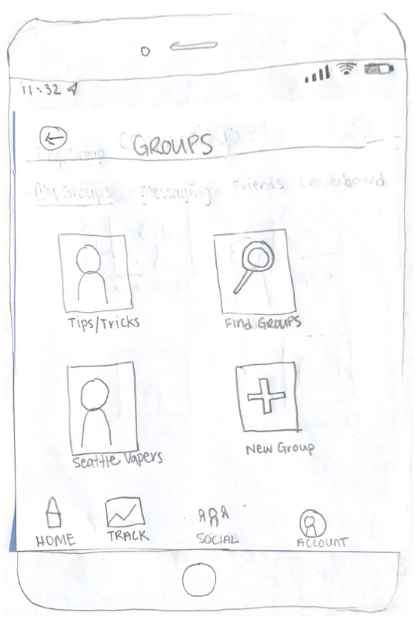 11:32
GROUPS
My Groups Messaging Friends Leaderboard
Tips/Tricks
Find GROUPS
Seattle Vapers
New Group
HOME
TRACK
SOCIAL
ACCOUNT